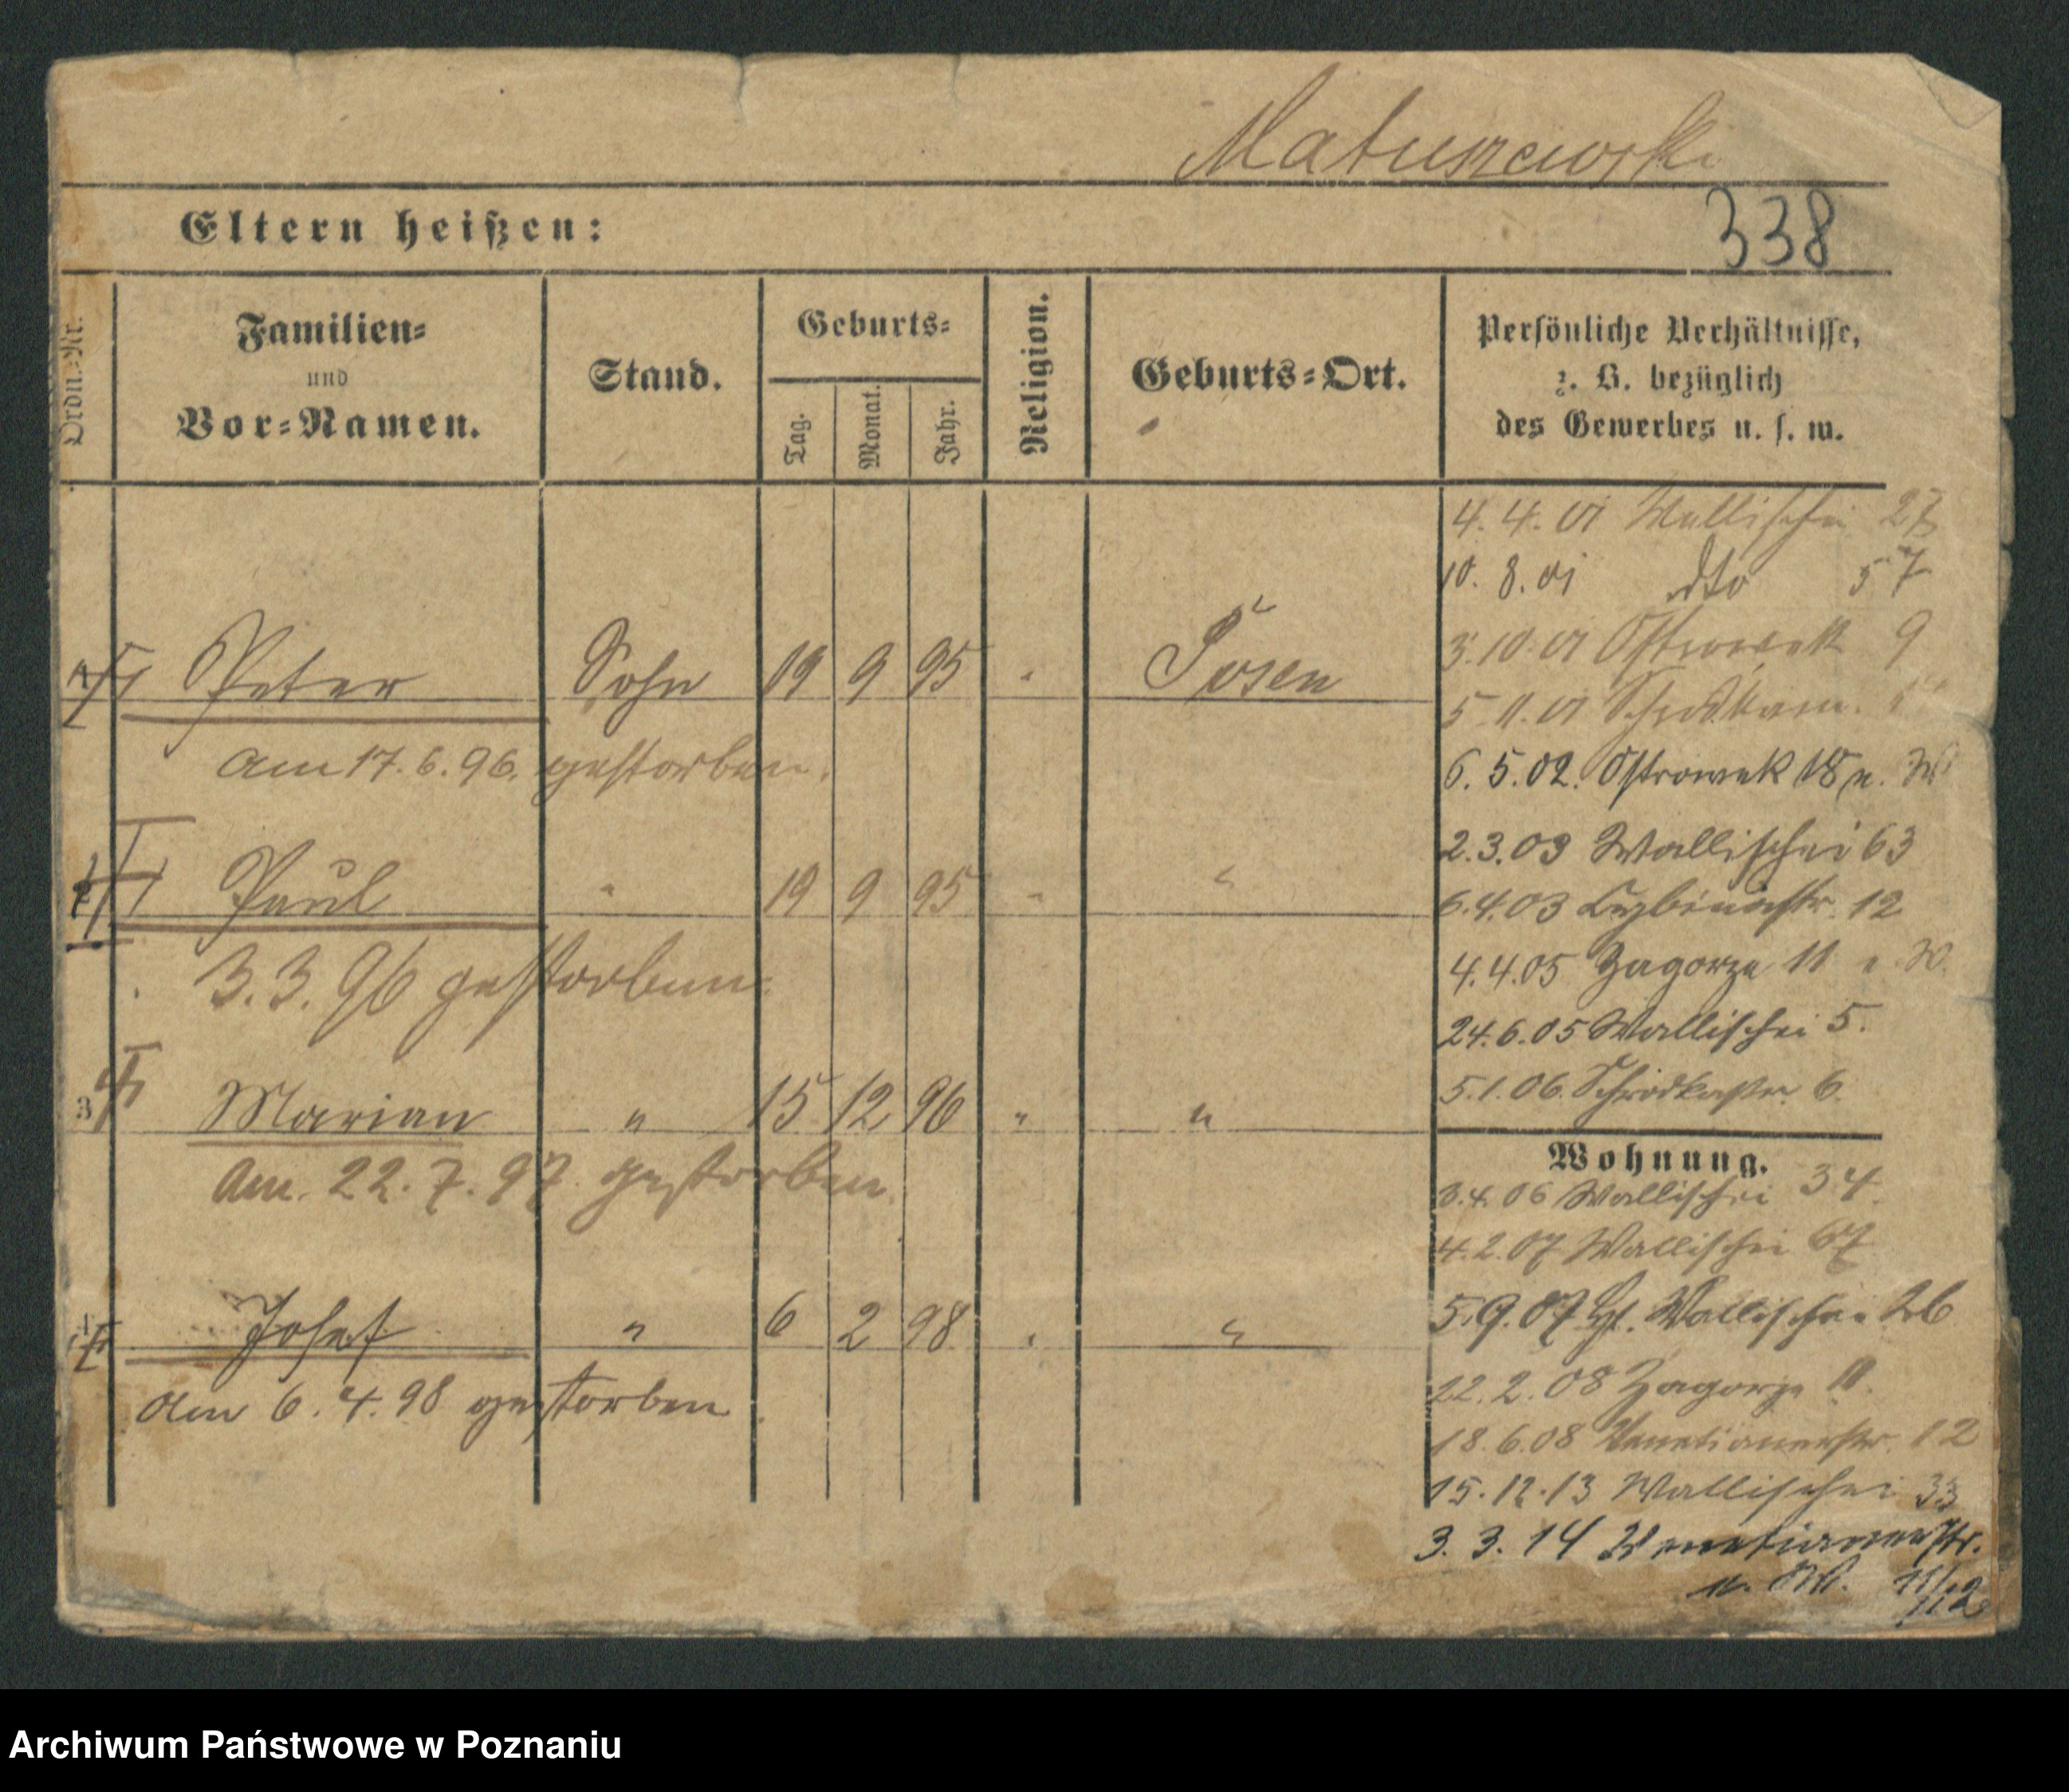 Matuszewski
338
Eltern heißen:
Ordn.-Nr.
Familien-
und
Vor-Namen.
Stand.
Geburts-
Tag.
Monat.
Jahr.
Religion.
Geburts-Ort.
Persönliche Verhältnisse,
z. B. bezüglich
des Gewerbes u. s. w.
Peter Sohn 19 9 95 " Posen
am 17. 6. 96. gestorben.
Paul " 19 9 95 " "
3. 3. 96 gestorben.
3 Marian " 15 12 96 " "
Am. 22. 7. 97. gestorben.
Josef " 6 2 98 " "
am 6. 4. 98 gestorben
4. 4. 01 Wallischei 27
10. 8. 01 dto 57
3. 10. 01 Ostrowek 9
5. 11. 01
6. 5. 02. Ostrowek 18 n. W
2. 3. 03 Wallischei 63
6. 4. 03 Cybinastr. 12
4. 4. 05 Zagorze 11 n. W.
24. 6. 05 Wallischei 5.
5. 1. 06. Schrodkastr. 6.
Wohnung.
3. 4. 06 Wallischei 34.
4. 2. 07 Wallischei 67
5. 9. 07 Wallischei 26
22. 2. 08 Zagorze 11.
18. 6. 08 Venetianerstr. 12
15. 12. 13 Wallischei 33
3. 3. 14 Venetianerstr.
11/12
Archiwum Państwowe w Poznaniu